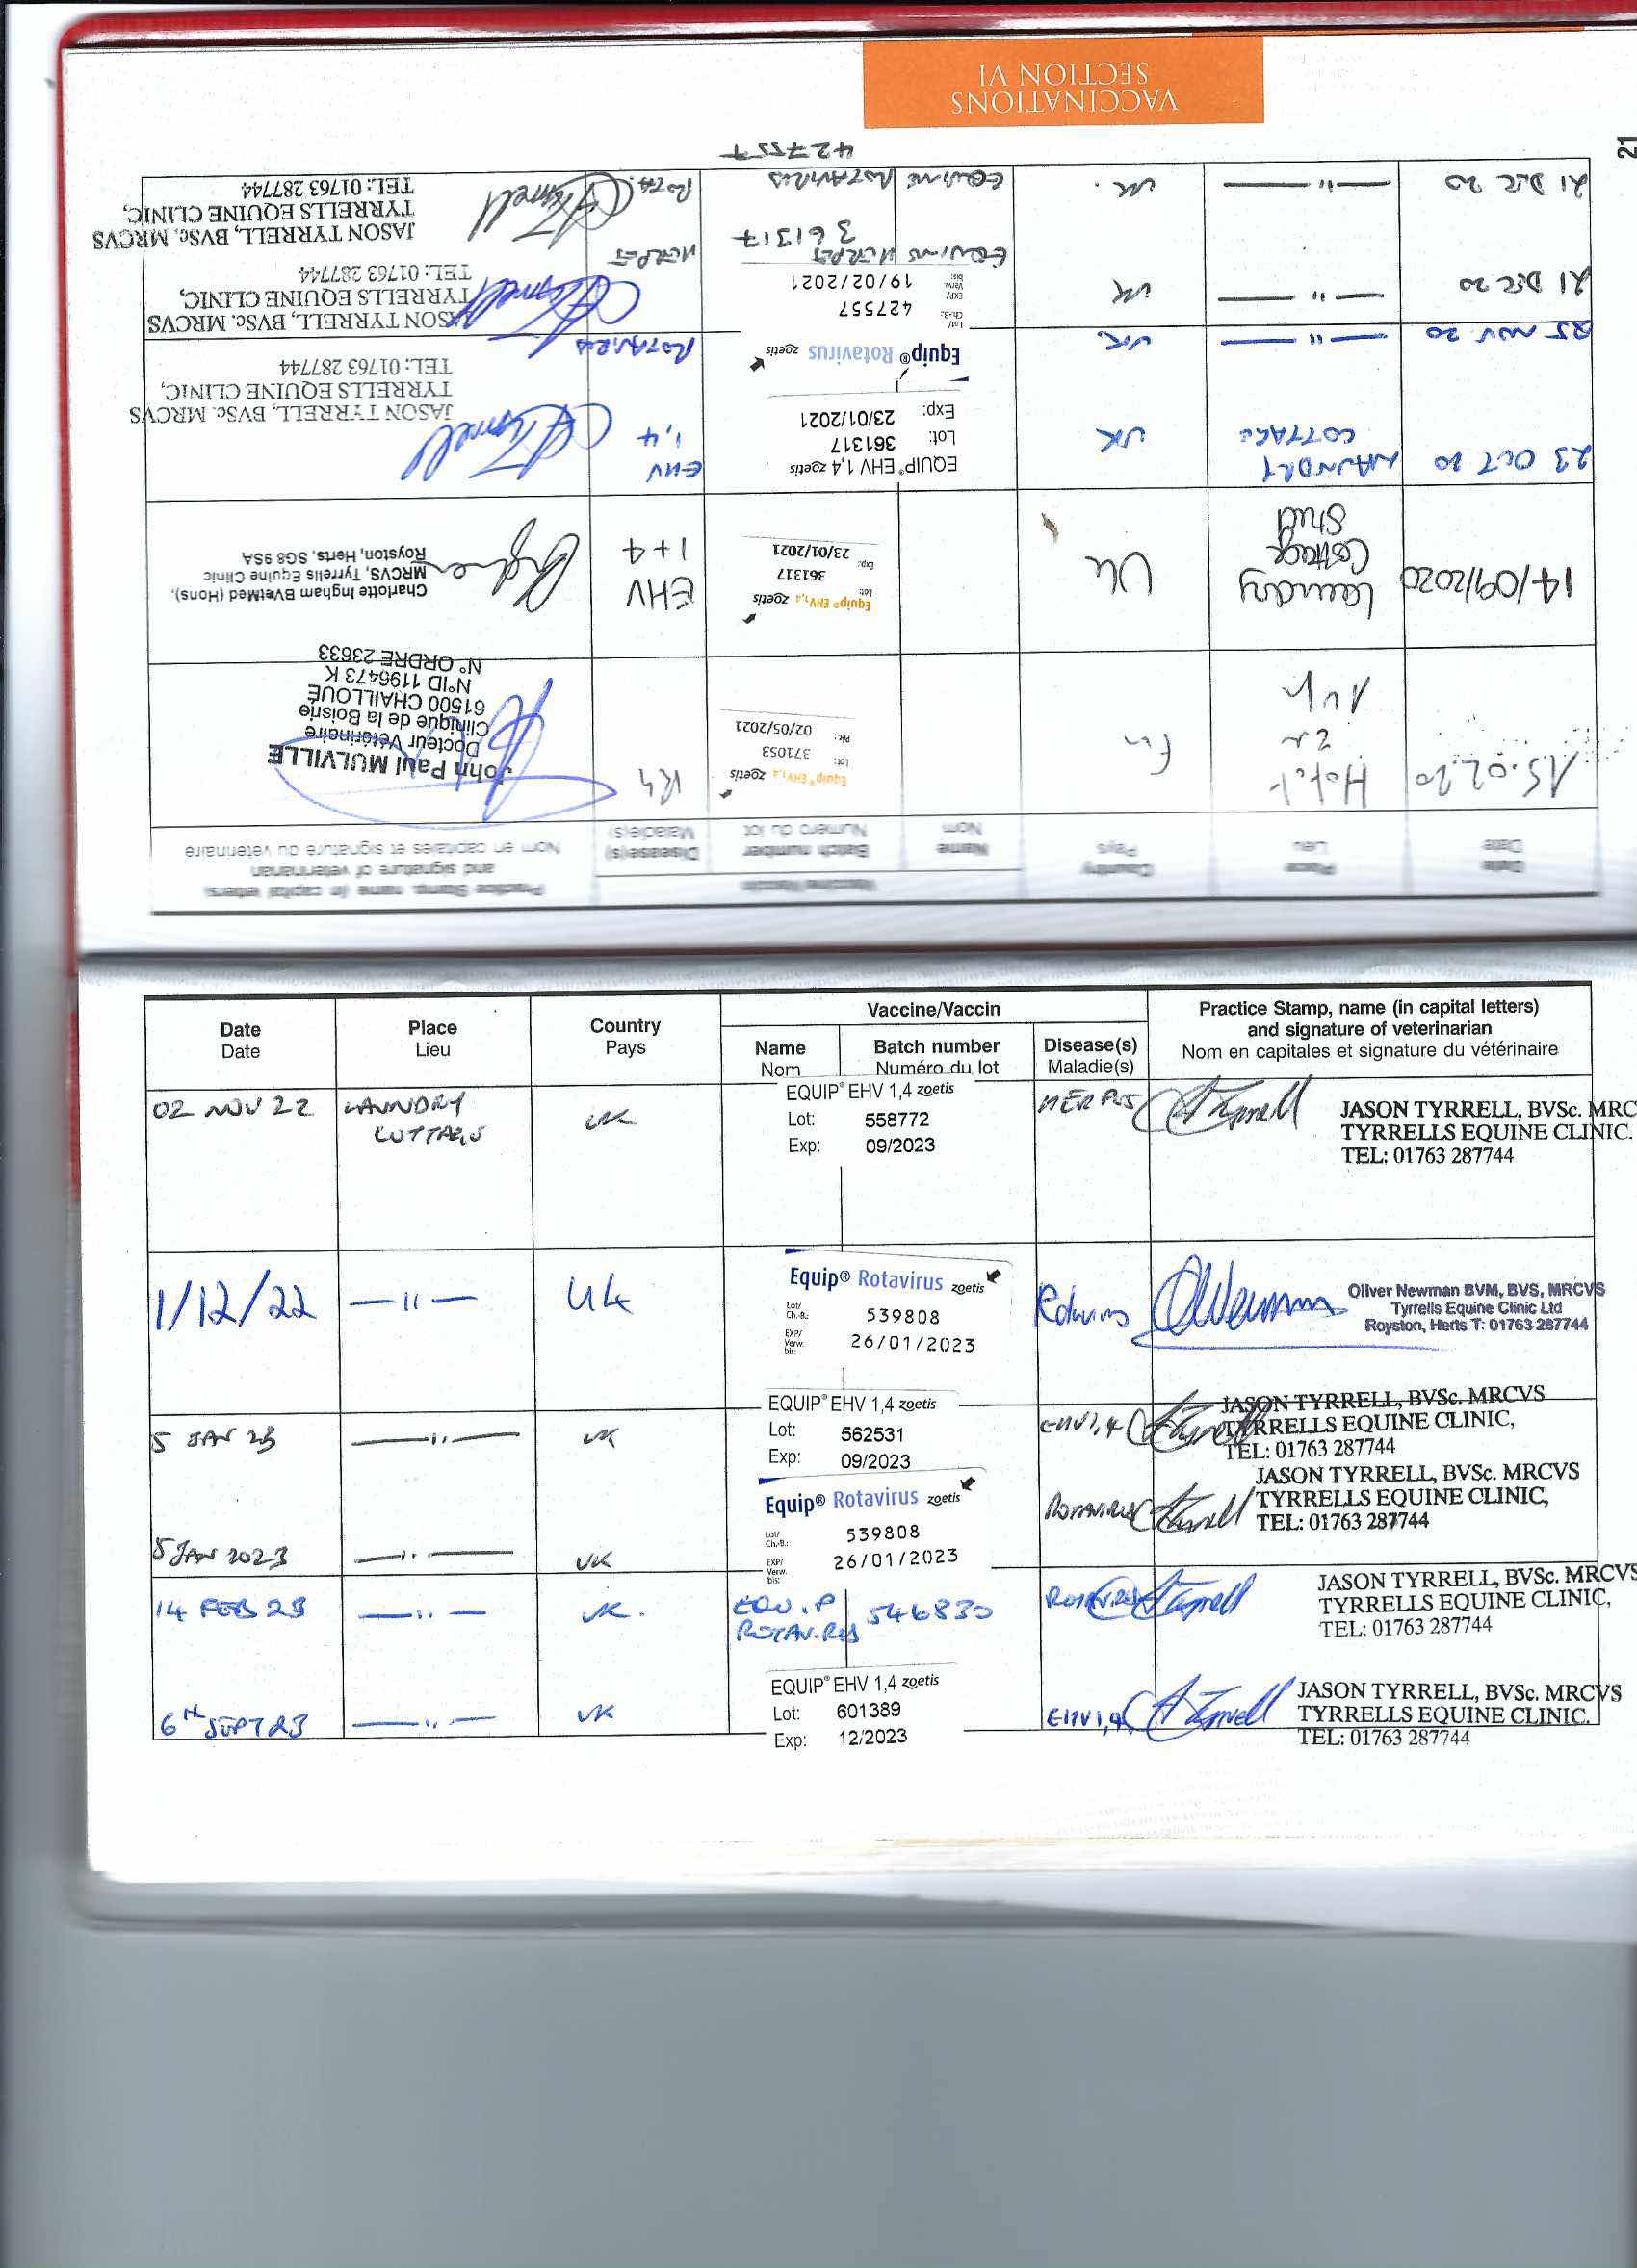 VACCINATIONS
SECTION VI
21
Date
Date
Place
Lieu
Country
Pays
Vaccine/Vaccin
Name
Nom
Batch number
Numéro du lot
Disease(s)
Maladie(s)
Practice Stamp, name (in capital letters)
and signature of veterinarian
Nom en capitales et signature du vétérinaire
15.02.20
Equip® EHV1,4 zoetis
Lot: 371053
02/05/2021
John Paul MULVILLE
Docteur Vétérinaire
Clinique de la Boisrie
61500 CHAILLOUÉ
N°ID 1196473 K
N° ORDRE 23633
14/09/2020
Laundry
Cottage
Stud
UK
Equip® EHV1,4 zoetis
Lot: 361317
Exp: 23/01/2021
EHV
1+4
Charlotte Ingham BVetMed (Hons),
MRCVS, Tyrrells Equine Clinic
Royston, Herts, SG8 9SA
23 OCT 20
LAUNDRY
COTTAGE
UK
EQUIP® EHV 1,4 zoetis
Lot: 361317
Exp: 23/01/2021
EHV
1,4
JASON TYRRELL, BVSc. MRCVS
TYRRELLS EQUINE CLINIC,
TEL: 01763 287744
25 NOV 20
— " —
UK
Equip® Rotavirus zoetis
Lot/ Ch.-B.: 427557
EXP/ Verw. bis: 19/02/2021
ROTAVIRUS
JASON TYRRELL, BVSc. MRCVS
TYRRELLS EQUINE CLINIC,
TEL: 01763 287744
21 DEC 20
— " —
UK
EQUINE HERPES
361317
HERPES
21 DEC 20
— " —
UK.
EQUINE ROTAVIRUS
427557
ROTA.
JASON TYRRELL, BVSc. MRCVS
TYRRELLS EQUINE CLINIC,
TEL: 01763 287744
Date
Date
Place
Lieu
Country
Pays
Vaccine/Vaccin
Name
Nom
Batch number
Numéro du lot
Disease(s)
Maladie(s)
Practice Stamp, name (in capital letters)
and signature of veterinarian
Nom en capitales et signature du vétérinaire
02 NOV 22
LAUNDRY
COTTAGE
UK
EQUIP® EHV 1,4 zoetis
Lot: 558772
Exp: 09/2023
HERPES
JASON TYRRELL, BVSc. MRC
TYRRELLS EQUINE CLINIC.
TEL: 01763 287744
1/12/22
— " —
UK
Equip® Rotavirus zoetis
Lot/ Ch.-B.: 539808
EXP/ Verw. bis: 26/01/2023
Rotavirus
Oliver Newman BVM, BVS, MRCVS
Tyrrells Equine Clinic Ltd
Royston, Herts T: 01763 287744
5 JAN 23
— " —
UK
EQUIP® EHV 1,4 zoetis
Lot: 562531
Exp: 09/2023
EHV1,4
JASON TYRRELL, BVSc. MRCVS
TYRRELLS EQUINE CLINIC,
TEL: 01763 287744
5 JAN 2023
— " —
UK
Equip® Rotavirus zoetis
Lot/ Ch.-B.: 539808
EXP/ Verw. bis: 26/01/2023
ROTAVIRUS
JASON TYRRELL, BVSc. MRCVS
TYRRELLS EQUINE CLINIC,
TEL: 01763 287744
14 FEB 23
— " —
UK.
EQUIP
ROTAVIRUS
546830
ROTAVIRUS
JASON TYRRELL, BVSc. MRCVS
TYRRELLS EQUINE CLINIC,
TEL: 01763 287744
6TH SEPT 23
— " —
UK
EQUIP® EHV 1,4 zoetis
Lot: 601389
Exp: 12/2023
EHV1,4
JASON TYRRELL, BVSc. MRCVS
TYRRELLS EQUINE CLINIC.
TEL: 01763 287744